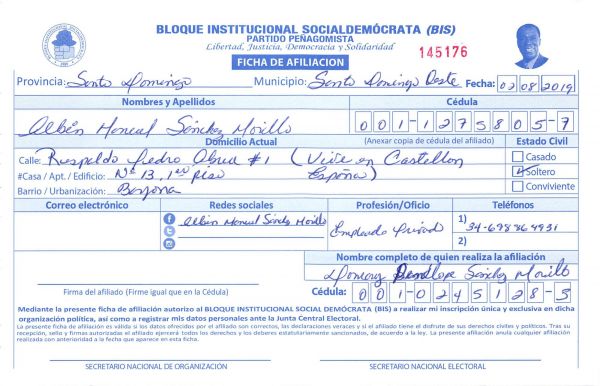 BLOQUE INSTITUCIONAL SOCIALDEMÓCRATA (BIS)
PARTIDO PEÑAGOMISTA
Libertad, Justicia, Democracia y Solidaridad
145176
FICHA DE AFILIACION
Provincia: Santo Domingo Municipio: Santo Domingo Oeste Fecha: 02-08-2019
Nombres y Apellidos Cédula
Albin Manuel Sánchez Morillo 001-1275805-7
Domicilio Actual (Anexar copia de cédula del afiliado) Estado Civil
Calle: Respaldo Pedro #1 (Vive en Castellon Casado
#Casa / Apt. / Edificio: Nº 13, 1er Piso España) Soltero
Barrio / Urbanización: Bayona Conviviente
Correo electrónico Redes sociales Profesión/Oficio Teléfonos
Albin Manuel Sánchez Morillo Empleado Privado 1) 34-698864931
2)
Nombre completo de quien realiza la afiliación
Sánchez Morillo
Firma del afiliado (Firme igual que en la Cédula) Cédula: 001-0245128-3
Mediante la presente ficha de afiliación autorizo al BLOQUE INSTITUCIONAL SOCIAL DEMÓCRATA (BIS) a realizar mi inscripción única y exclusiva en dicha
organización política, así como a registrar mis datos personales ante la Junta Central Electoral.
La presente ficha de afiliación es válida si los datos ofrecidos por el afiliado son correctos, las declaraciones veraces y si el afiliado tiene el disfrute de sus derechos civiles y políticos. Tras su
recepción, sello y firmas autorizadas el afiliado ejercerá todos los derechos y los deberes estatutariamente sancionados, de acuerdo a la ley. La presente afiliación anula cualquier afiliación
realizada con anterioridad a la fecha que aparece en esta ficha.
SECRETARIO NACIONAL DE ORGANIZACIÓN SECRETARIO NACIONAL ELECTORAL